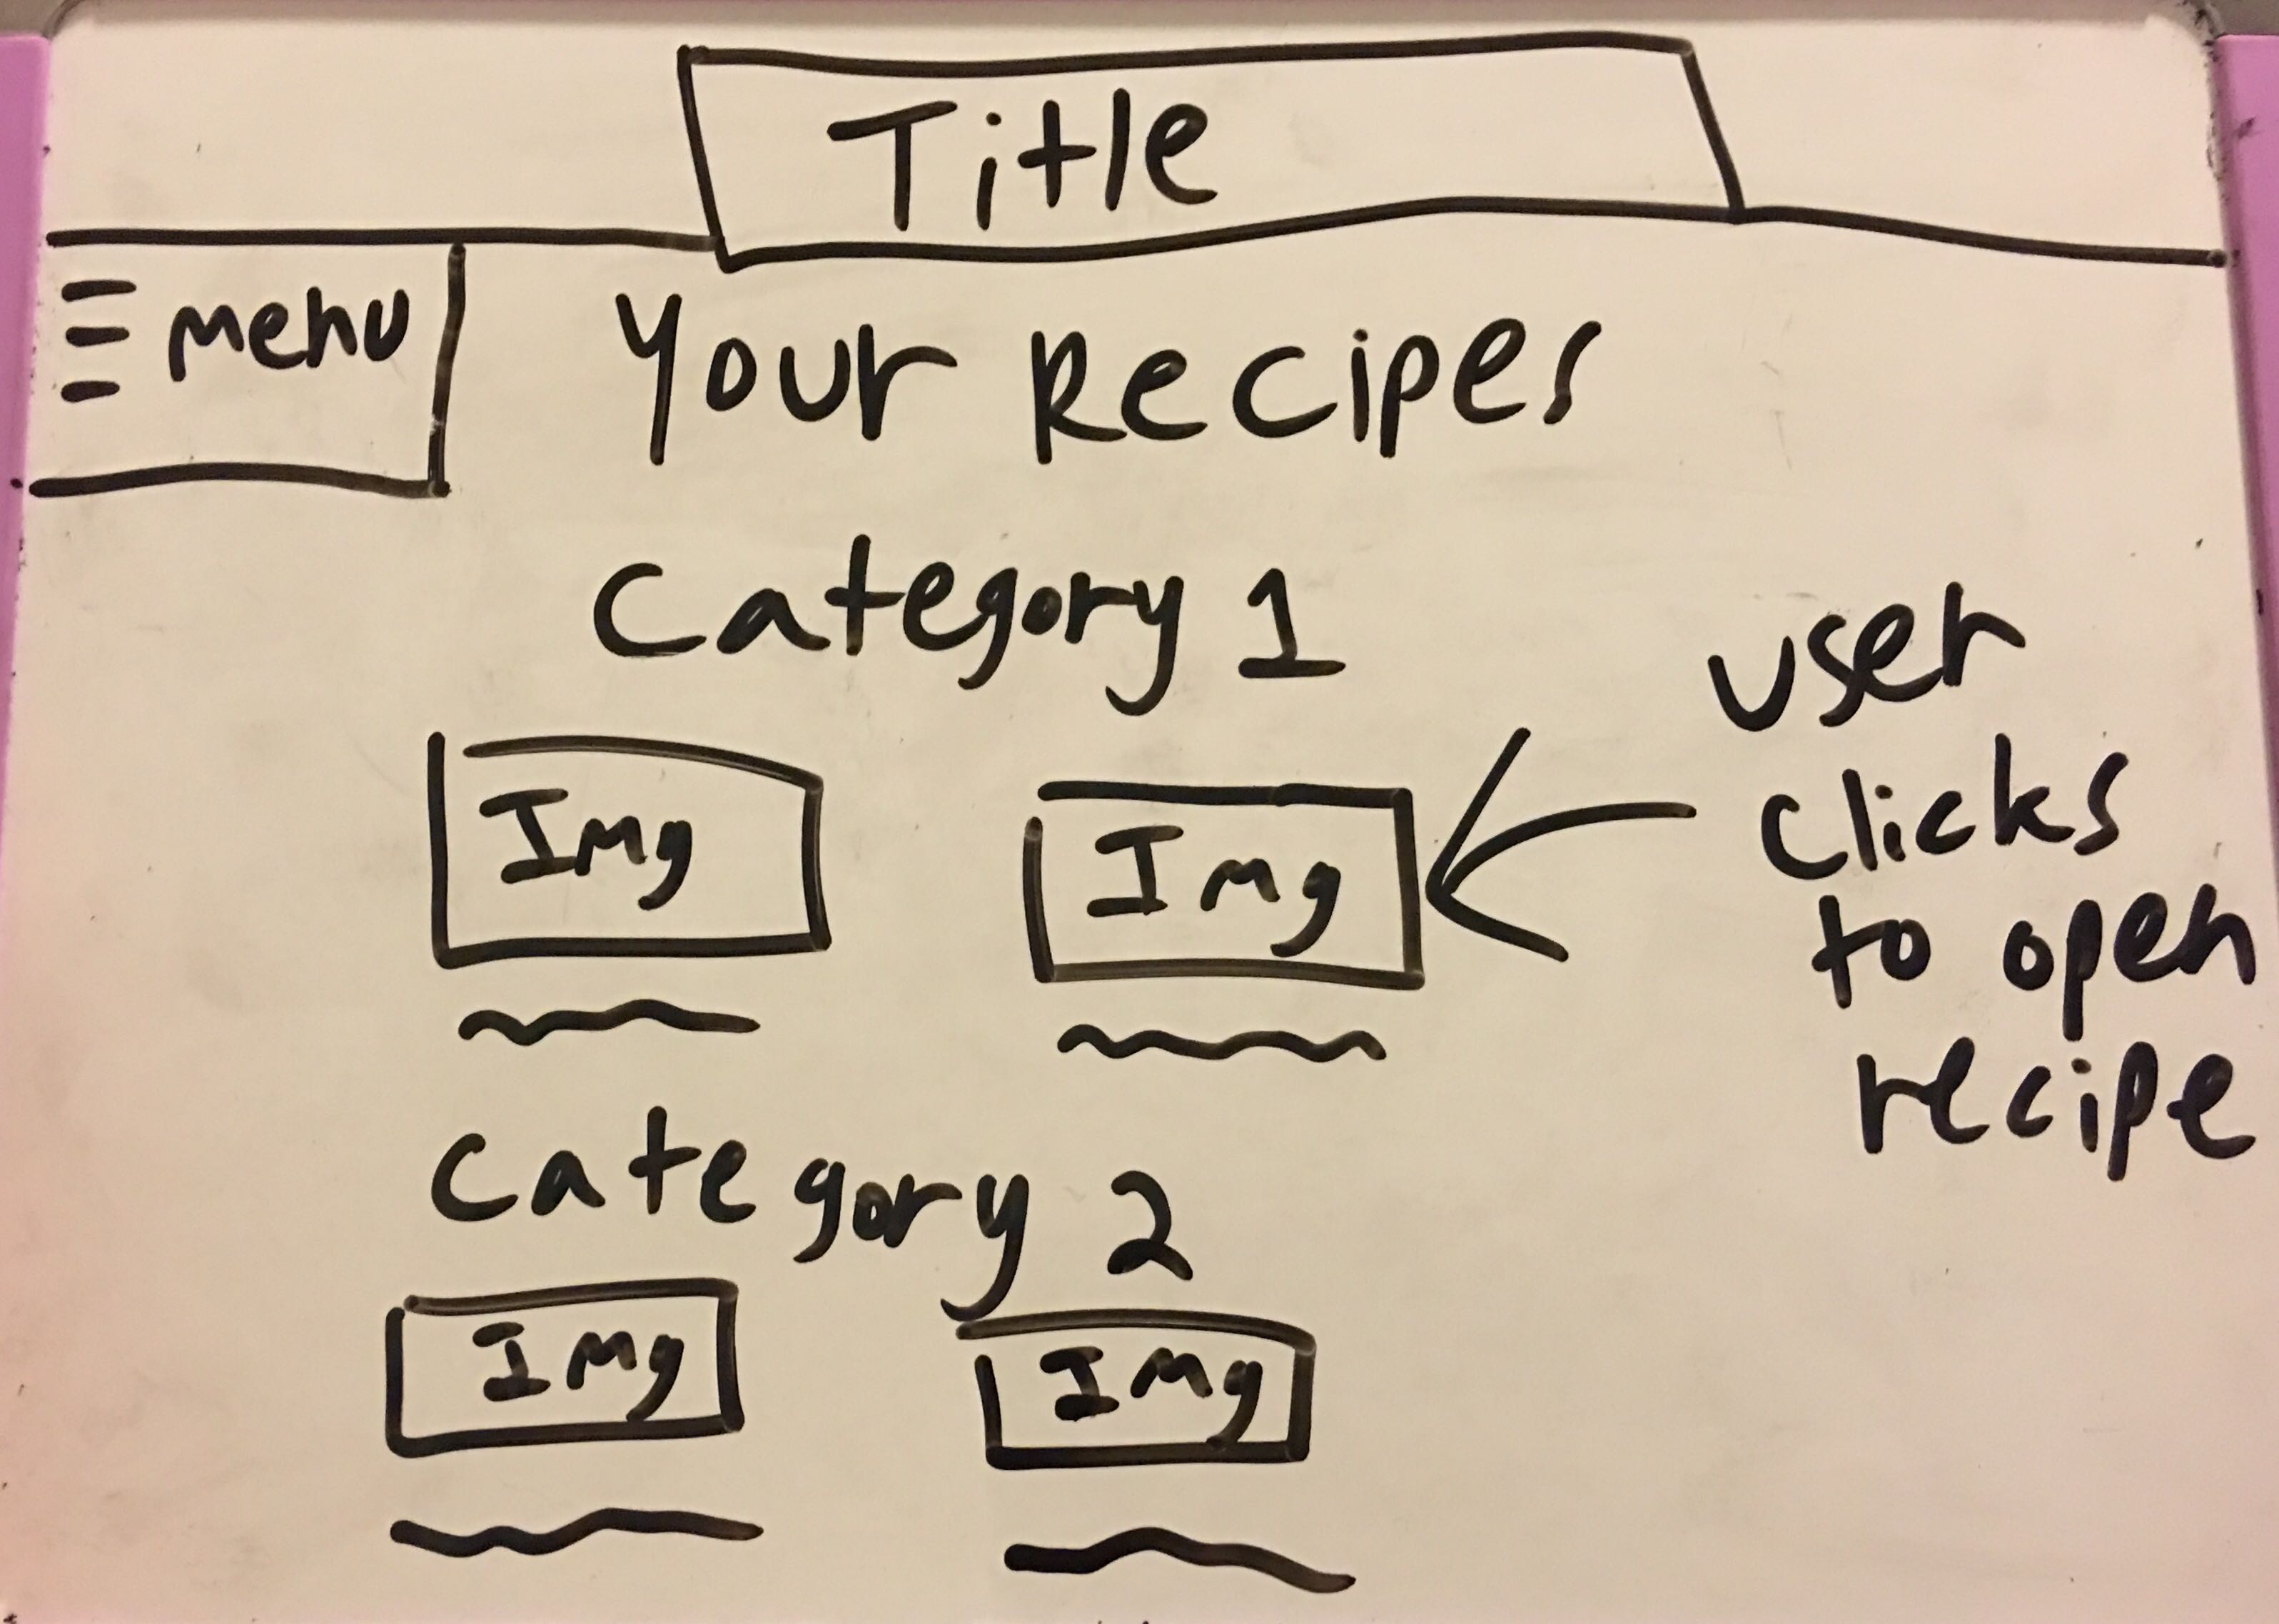 Title
Menu
Your Recipes
Category 1
Img
Img
user
clicks
to open
recipe
Category 2
Img
Img